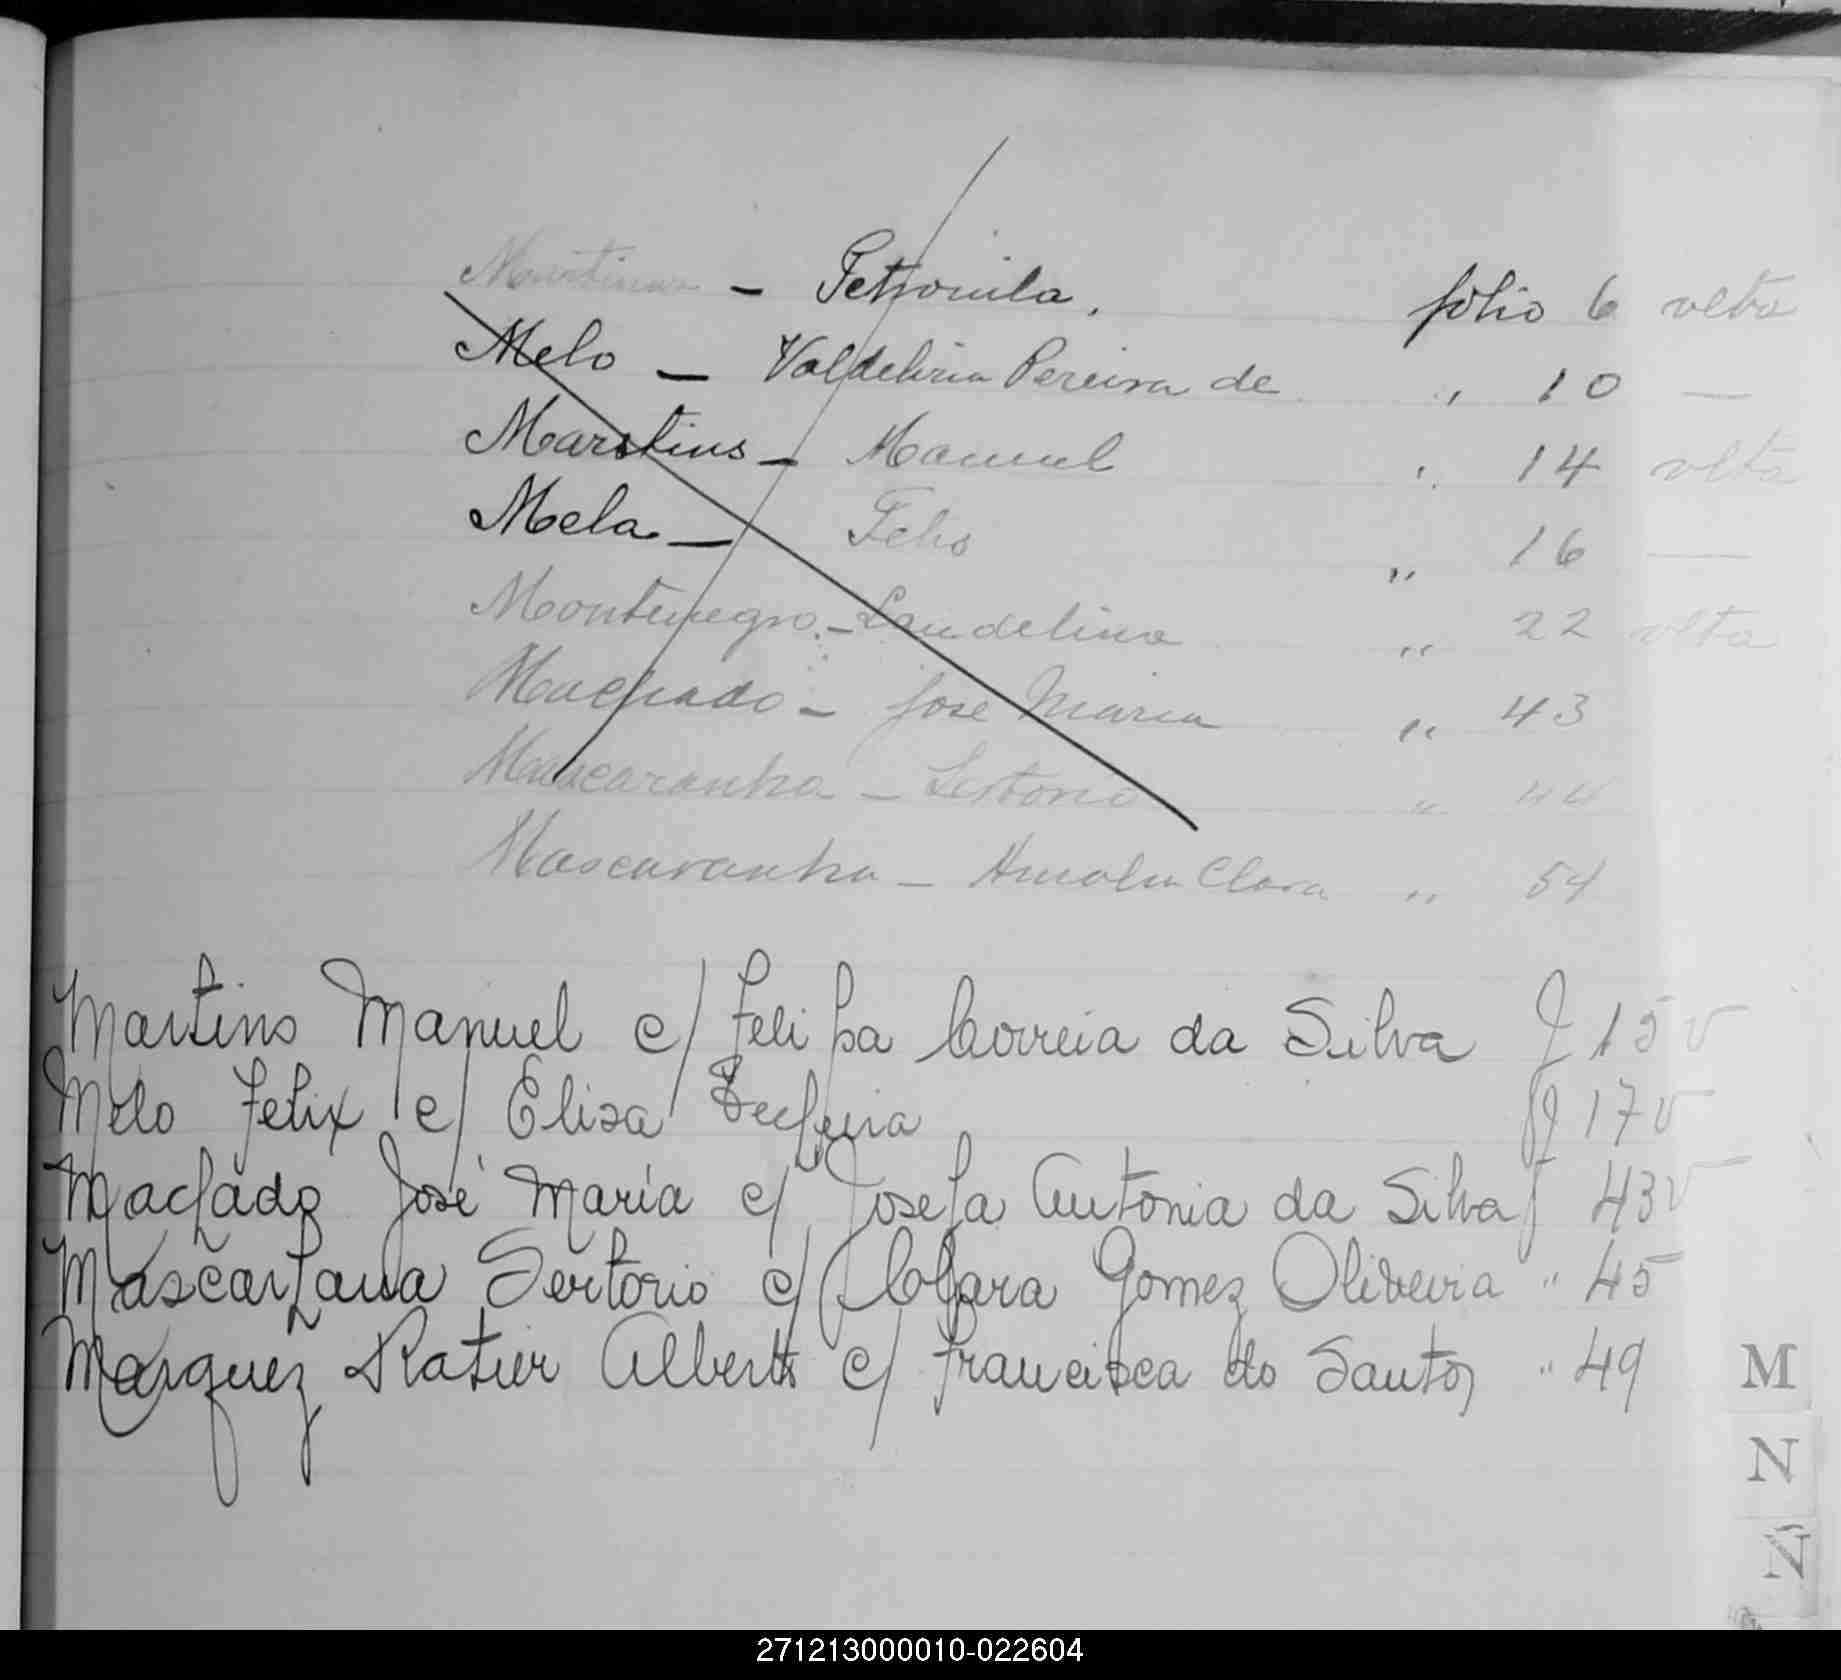 Martins - Petronila. folio 6 velta
Melo - Valdeliria Pereira de " 10 —
Martins - Manuel " 14 velta
Mela - Felis " 16 —
Montenegro - Laudelina " 22 velta
Machado - Jose Maria " 43
Mascaranha - Sertorio " 44
Mascaranha - Amalia Clara " 54
Martins Manuel c/ Felipa Correia da Silva f 15 v
Melo Felix c/ Elisa f 17 v
Machado José María c/ Josefa Antonia da Silva f 43 v
Sertorio c/ Clara Gomez Oliveira " 45
Marquez Ratier Alberto c/ Francisca do Santos " 49
M
N
Ñ
271213000010-022604